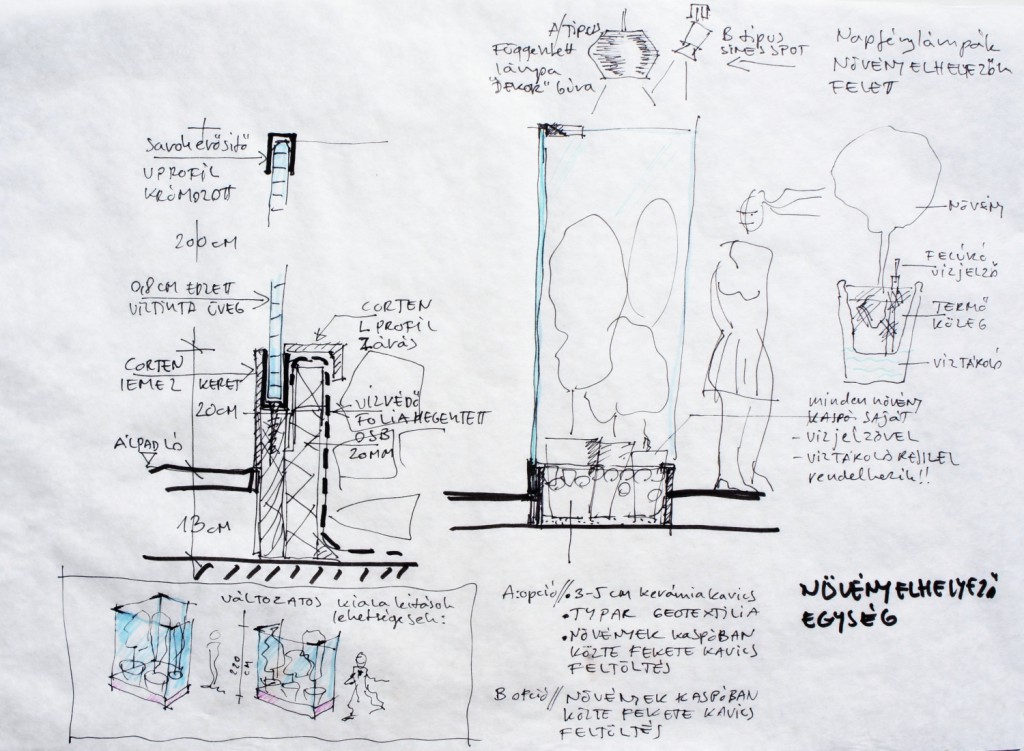 A/TIPUS
Függesztett
lámpa
"DEKOR" búra
B tipus
SINES SPOT
Napfénylámpák
NÖVÉNYELHELYEZŐK
FELETT
Savokerősitő
U PROFIL
KRÓMOZOTT
200 CM
0,8 CM EDZETT
VIZTISZTA ÜVEG
CORTEN
L PROFIL
ZÁRÁS
CORTEN
LEMEZ KERET
20 CM
VÍZVÉDŐ
FÓLIA HEGESZTETT
OSB
20MM
ÁLPADLÓ
13 CM
NÖVÉNY
FELÚSZÓ
VIZJELZŐ
TERMŐ
KÖZEG
VIZTÁROLÓ
minden NÖVÉNY
KASPÓ SAJÁT
- VIZJELZŐVEL
- VIZTÁROLÓ RÉSSZEL
rendelkezik!!
VÁLTOZATOS kialakitások
lehetségesek:
220 CM
A:opció// • 3-5 cm kerámia kavics
• TYPAR GEOTEXTILIA
• NÖVÉNYEK KASPÓBAN
KÖZTE FEKETE KAVICS
FELTÖLTÉS
B opció// NÖVÉNYEK KASPÓBAN
KÖZTE FEKETE KAVICS
FELTÖLTÉS
NÖVÉNYELHELYEZŐ
EGYSÉG